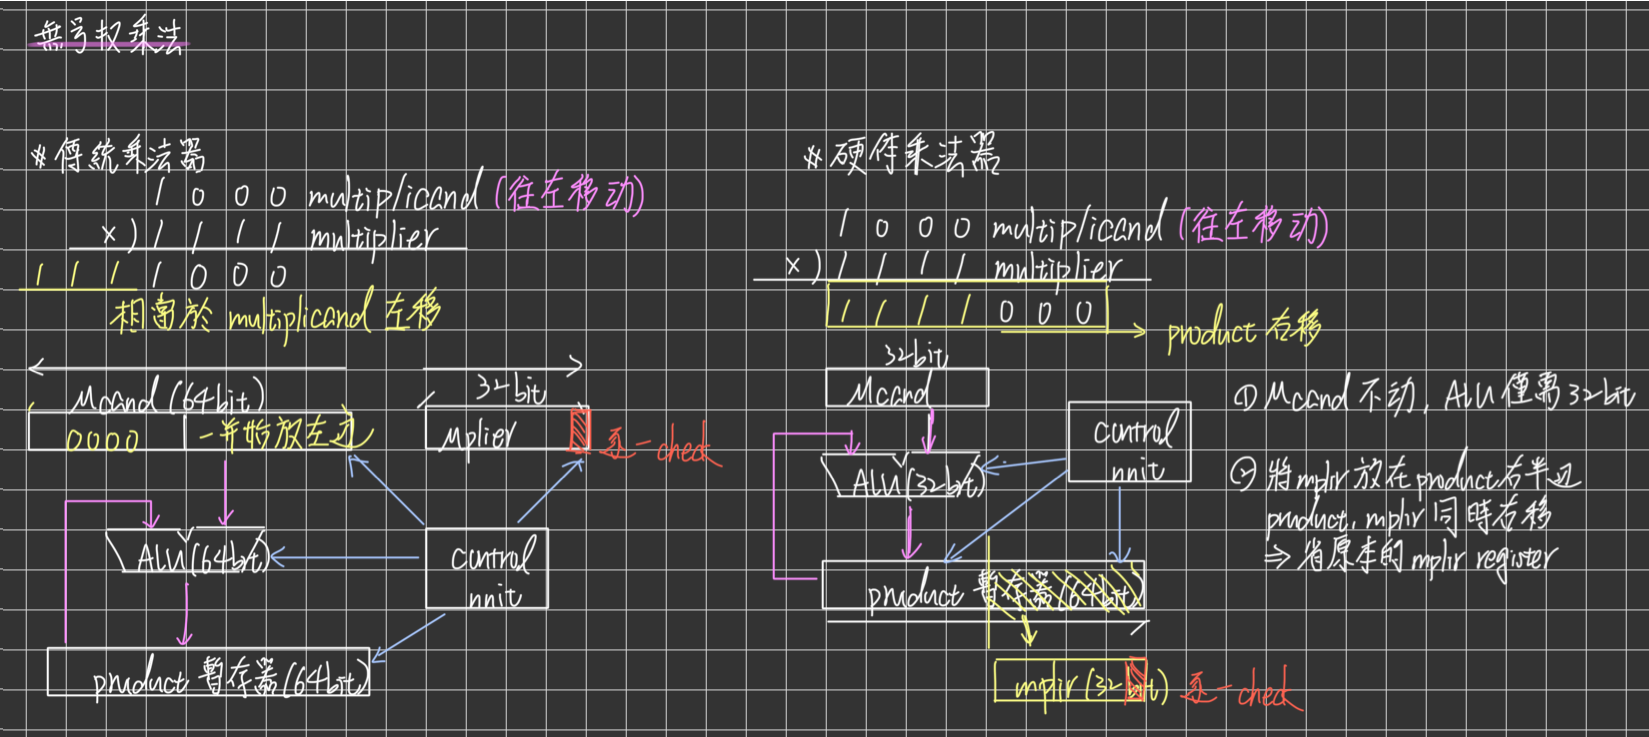 無号权乘法
※傳統乘法器
1 0 0 0 multiplicand (往左移动)
x) 1 1 1 1 multiplier
1 1 1 1 0 0 0
相當於 multiplicand 左移
Mcand (64bit)
0000 一半始放左边
32bit
Mplier
逐一check
ALU(64bit)
control
unit
product 暫存器(64bit)
※硬件乘法器
1 0 0 0 multiplicand (往左移动)
x) 1 1 1 1 multiplier
1 1 1 1 0 0 0
product 右移
32bit
Mcand
ALU(32bit)
control
unit
product 暫存器(64bit)
mplir(32bit)
逐一check
① Mcand 不动, ALU 僅需 32bit
② 將 mplir 放在 product 右半边
product, mplir 同時右移
⇒ 省原本的 mplir register